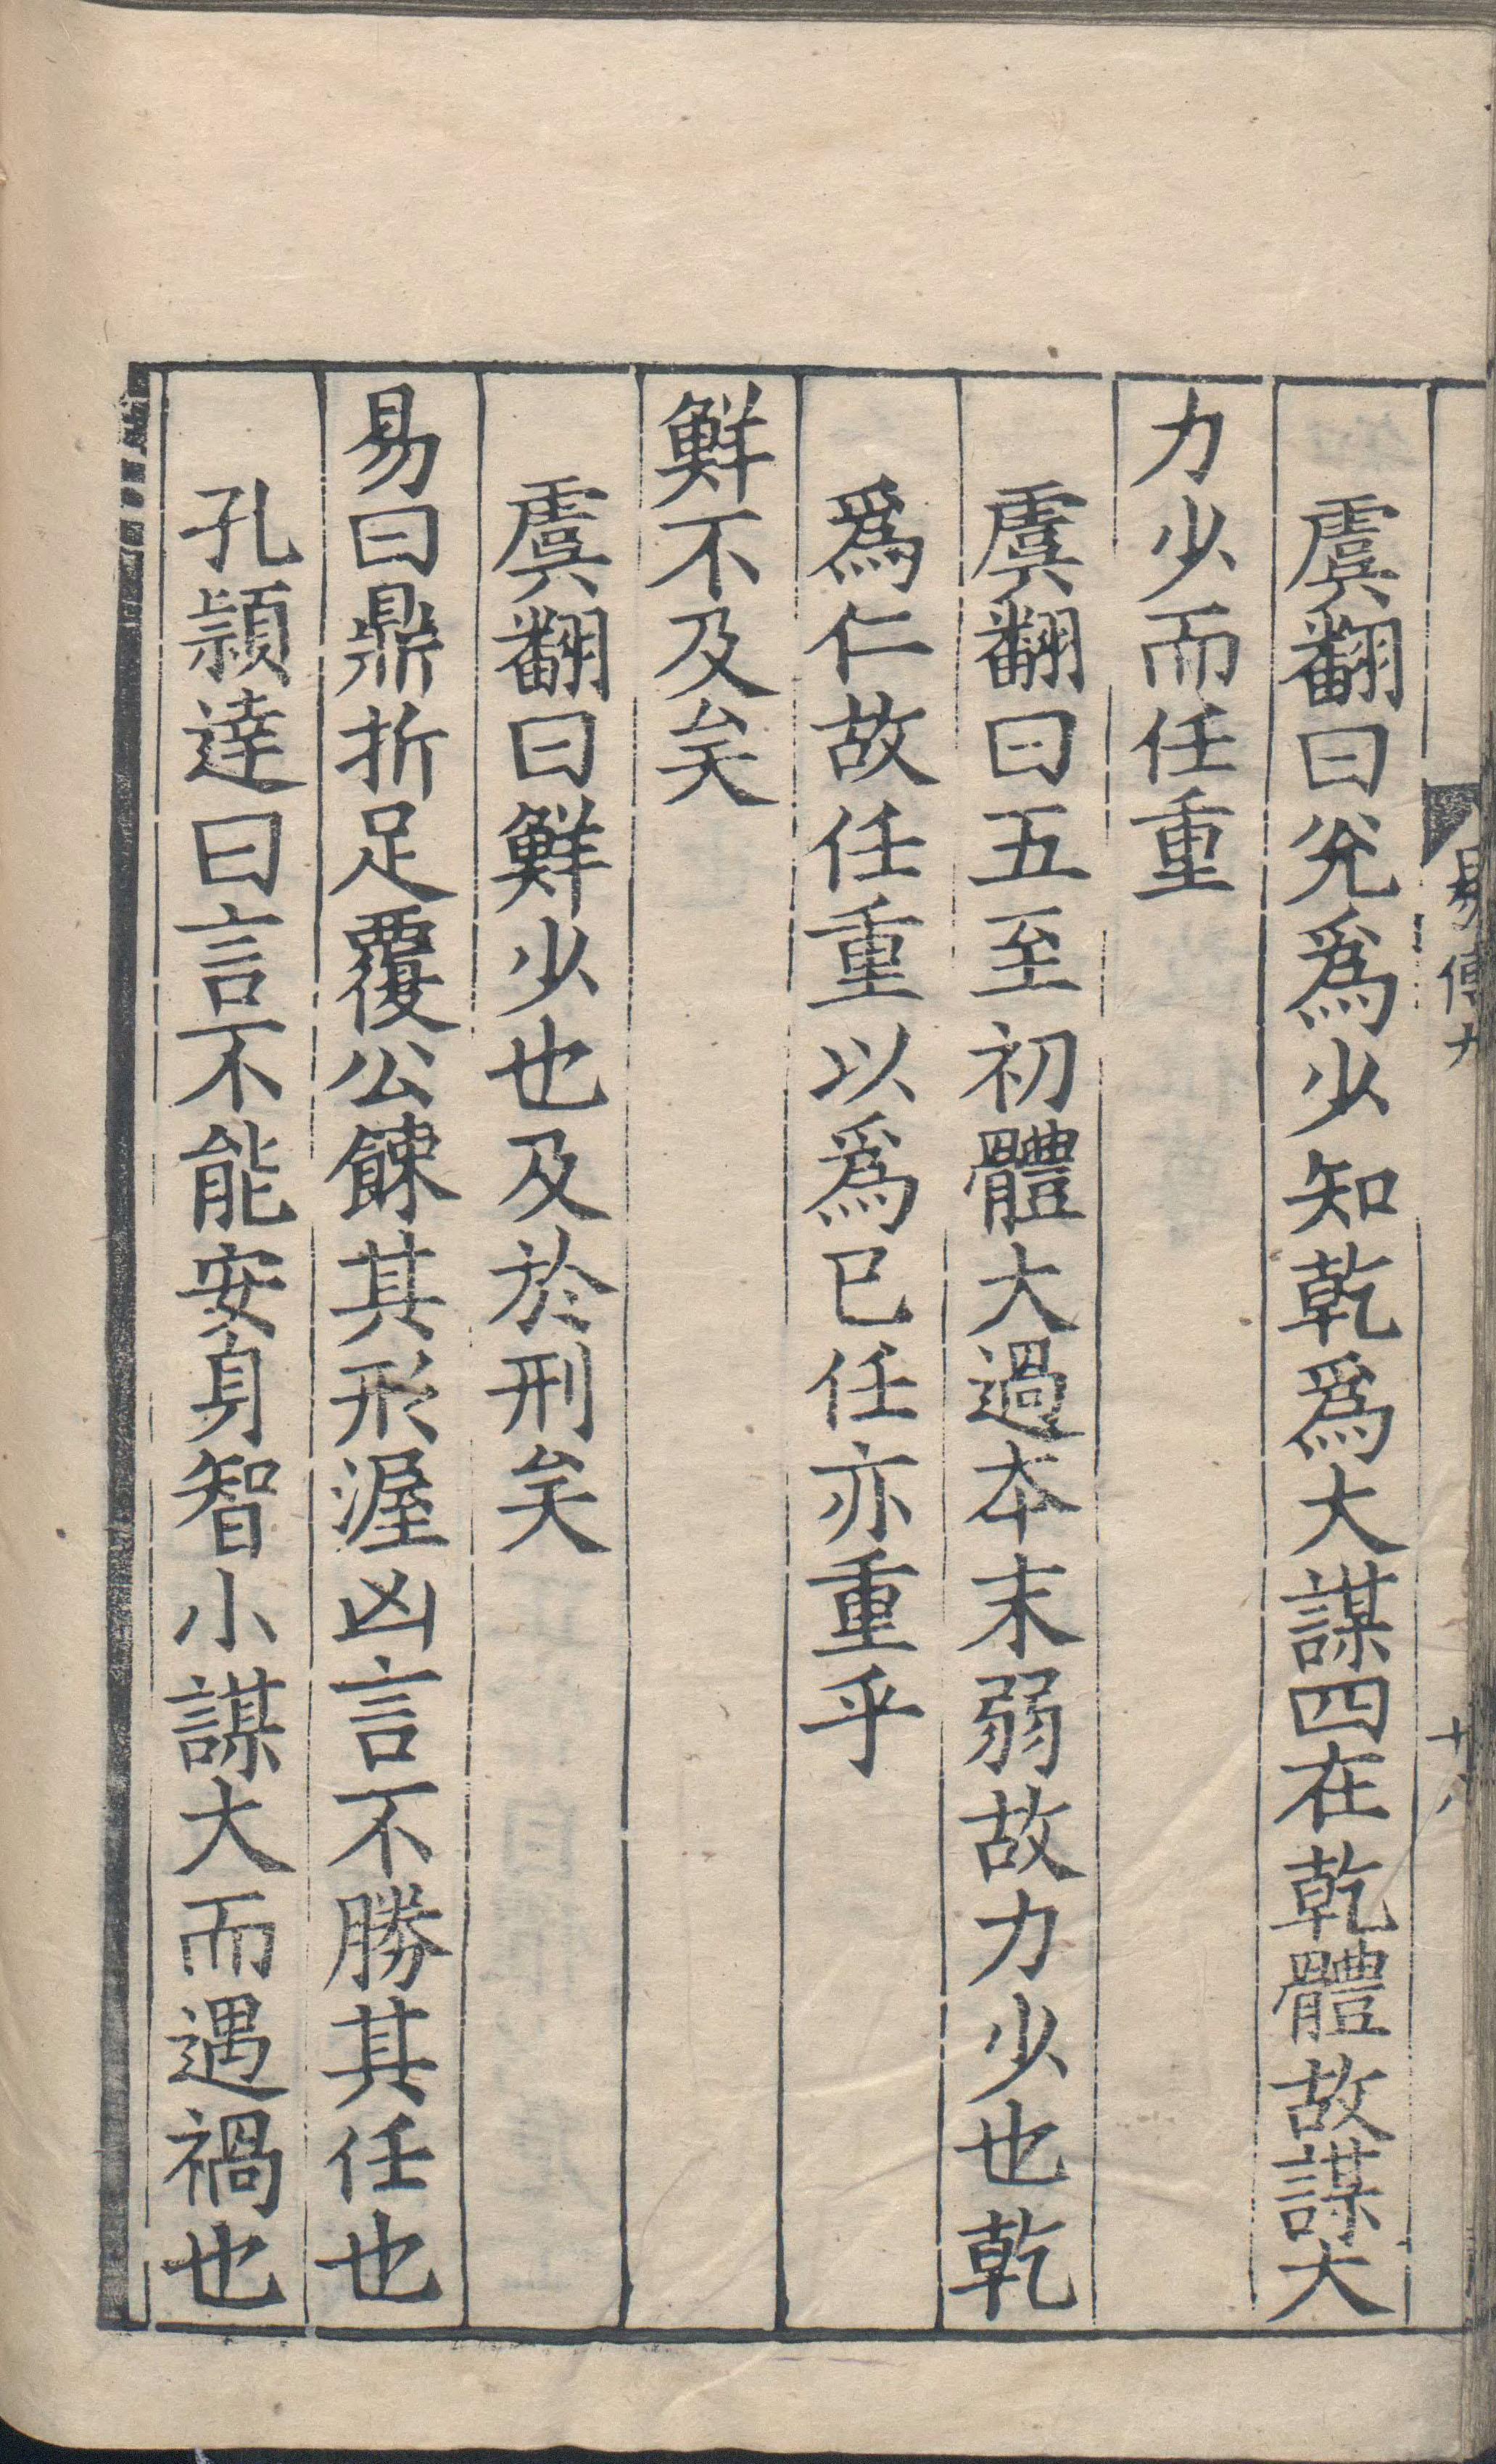 易傳九
十八
虞翻曰兊爲少知乾爲大謀四在乾體故謀大
力少而任重
虞翻曰五至初體大過本末弱故力少也乾
爲仁故任重以爲已任亦重乎
鮮不及矣
虞翻曰鮮少也及於刑矣
易曰鼎折足覆公餗其形渥凶言不勝其任也
孔頴達曰言不能安身智小謀大而遇禍也